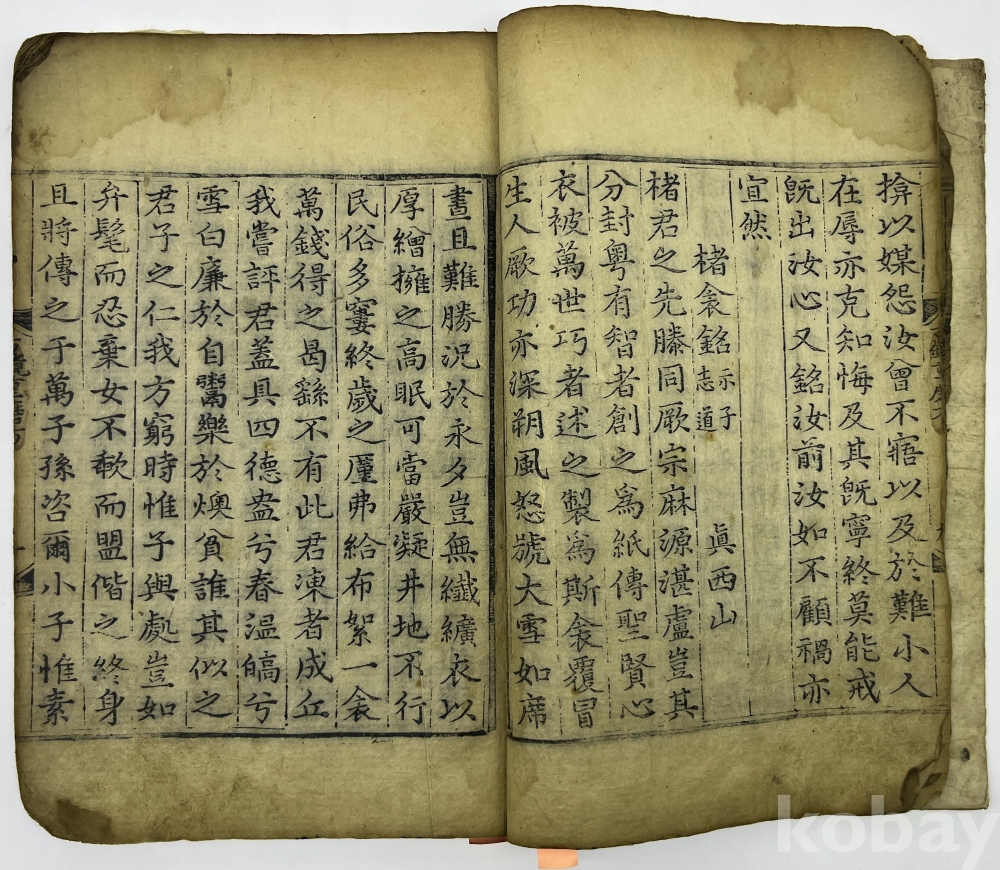 揜以媒怨汝曾不寤以及於難小人
在辱亦克知悔及其旣寧終莫能戒
旣出汝心又銘汝前汝如不顧禍亦
宜然
楮衾銘示子志道 眞西山
楮君之先滕同厥宗麻源湛盧豈其
分封粤有智者創之爲紙傳聖賢心
衣被萬世巧者述之製爲斯衾覆冒
生人厥功亦深朔風怒號大雪如席
晝且難勝況於永夕豈無纖纊衣以
厚繒擁之高眠可當嚴凝井地不行
民俗多窶終歲之廑弗給布絮一衾
萬錢得之曷繇不有此君凍者成丘
我嘗評君蓋具四德盎兮春温皜兮
雪白廉於自鬻樂於燠貧誰其似之
君子之仁我方窮時惟子與處豈如
弁髦而忍棄女不斁而盟偕之終身
且將傳之于萬子孫咨爾小子惟素
kobay